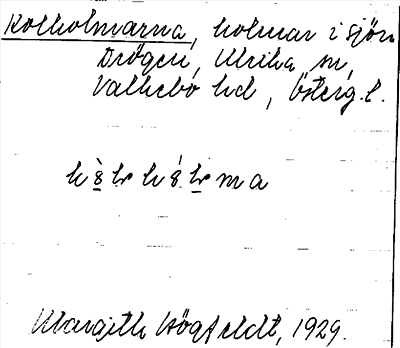 Kolholmarna, holmar i sjön
Drögen, Ulrika sn,
Valkebo hd, Österg. l.
Margith Högfeldt, 1929.